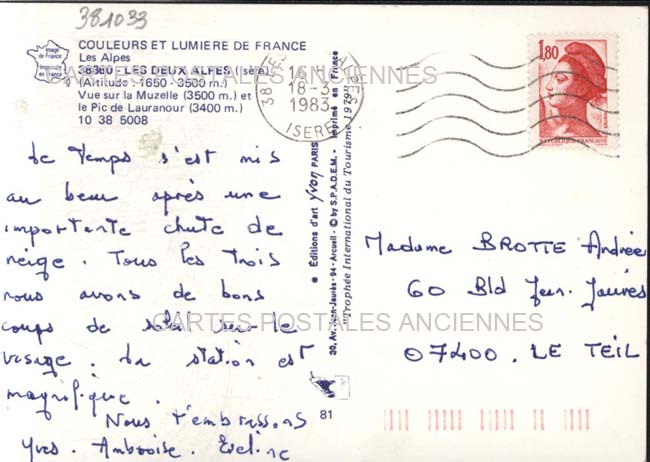 381033
Image
de France
COULEURS ET LUMIERE DE FRANCE
Les Alpes
38860 - LES DEUX ALPES (Isère)
(Altitude : 1650 - 3500 m.)
Vue sur la Muzelle (3500 m.) et
le Pic de Lauranour (3400 m.)
10 38 5008
CARTES POSTALES ANCIENNES
18-3
1983
ISERE
1,80
REPUBLIQUE FRANÇAISE
Le temps s'est mis
au beau après une
importante chute de
neige. Tous les trois
nous avons de bons
coups de soleil sur le
visage. La station est
magnifique.
Nous t'embrassons
Yves. Ambroise. Eveline
● Éditions d'art Yvon PARIS
30, Av. Jean-Jaurès - 94 - Arcueil - © by S.P.A.D.E.M. - Imprimé en France
"Trophée International du Tourisme 1979"
81
Madame BROTTE Andrée
60 Bld Jean Jaurès
07400. LE TEIL
CARTES POSTALES ANCIENNES